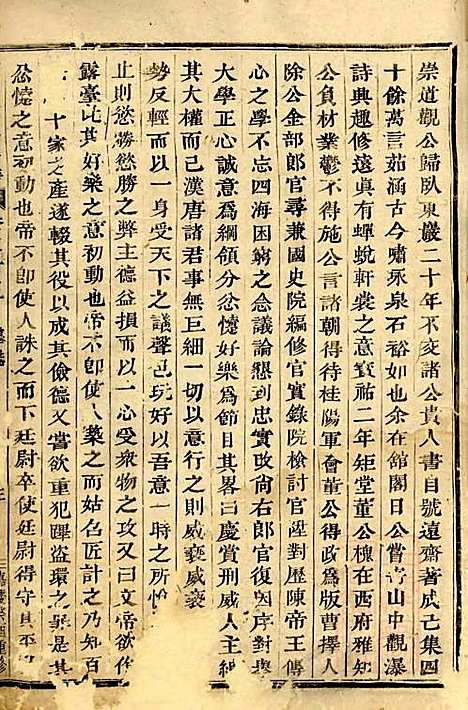 崇道觀公歸臥東巖二十年不亥諸公貴人書自號遠齋著成己集四
十餘萬言茹涵古今嘯永泉石裕如也余在館閣日公嘗寄山中觀瀑
詩典趣修遠眞有蟬蛻軒裳之意寶祐二年矩堂董公槐在西府雅知
公負材業鬱不得施公言諸朝得待桂陽軍會董公得政爲版曹擇人
除公金部郎官尋兼國史院編修官實錄院檢討官踨對歷陳帝王傳
心之學不忘四海困窮之念議論懇到忠實改尙右郎官復因陛對與
大學正心誠意爲綱領分忿懥好樂爲節目其畧曰慶賞刑威人主神
其大權而已漢唐諸君事無巨細一切以意行之則威褻威褻
勢反輕而以一身受天下之議聲色玩好以吾意一時之所
止則慾勝慾勝之弊主德益損而以一心受衆物之攻又曰文帝欲作
露臺此其好樂之意初動也帝不卽使人築之而姑召匠計之乃知百
十家之產遂輟其役以成其儉德又嘗欲重犯蹕盜環之辠是其
忿懥之意初動也帝不卽使人誅之而下廷尉卒使廷尉得守其